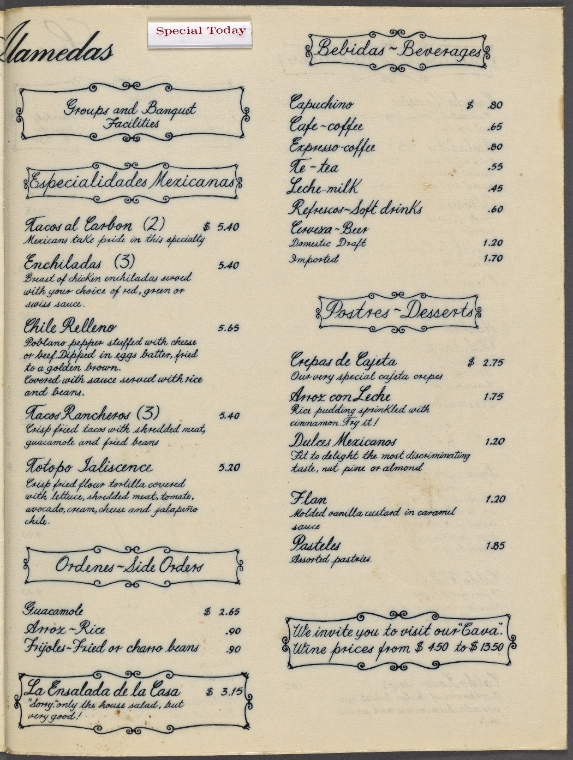 Alamedas
Special Today
Groups and Banquet
Facilities
Especialidades Mexicanas
Tacos al Carbon (2) $ 5.40
Mexicans take pride in this specialty
Enchiladas (3) 5.40
Breast of chicken enchiladas served
with your choice of red, green or
swiss sauce.
Chile Relleno 5.65
Poblano pepper stuffed with cheese
or beef Dipped in eggs batter, fried
to a golden brown.
Covered with sauce served with rice
and beans.
Tacos Rancheros (3) 5.40
Crisp fried tacos with shredded meat,
guacamole and fried beans
Totopo Jaliscence 5.20
Crisp fried flour tortilla covered
with lettuce, shredded meat, tomato,
avocado, cream, cheese and jalapeño
chile.
Ordenes~Side Orders
Guacamole $ 2.65
Arroz~Rice .90
Frijoles~Fried or charro beans .90
La Ensalada de la Casa $ 3.15
"Sorry," only the house salad, but
very good!
Bebidas~Beverages
Capuchino $ .80
Cafe~coffee .65
Expresso-coffee .80
Te~tea .55
Leche-milk .45
Refrescos~Soft drinks .60
Cerveza~Beer
Domestic Draft 1.20
Imported 1.70
Postres~Desserts
Crepas de Cajeta $ 2.75
Our very special cajeta crepes
Arroz con Leche 1.75
Rice pudding sprinkled with
cinnamon. Try it!
Dulces Mexicanos 1.20
Fit to delight the most discriminating
taste, nut pine or almond
Flan 1.20
Molded vanilla custard in caramel
sauce
Pasteles 1.85
Assorted pastries
We invite you to visit our "Cava".
Wine prices from $ 4.50 to $ 13.50